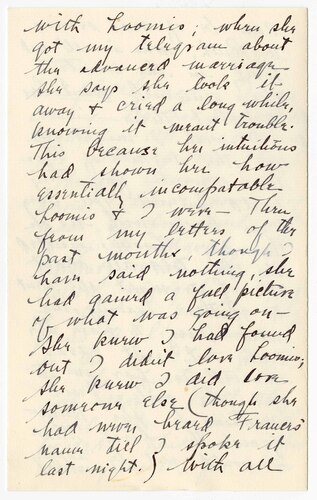 with Loomis; when she
got my telegram about
the advanced marriage
she says she took it
away & cried a long while,
knowing it meant trouble.
This because her intuitions
had shown her how
essentially incompatable
Loomis & I were - Then
from my letters of the
past months, though I
have said nothing, she
had gained a full picture
of what was going on -
she knew I had found
out I didn't love Loomis;
she knew I did love
someone else (though she
had never heard Frances'
name till I spoke it
last night.) With all